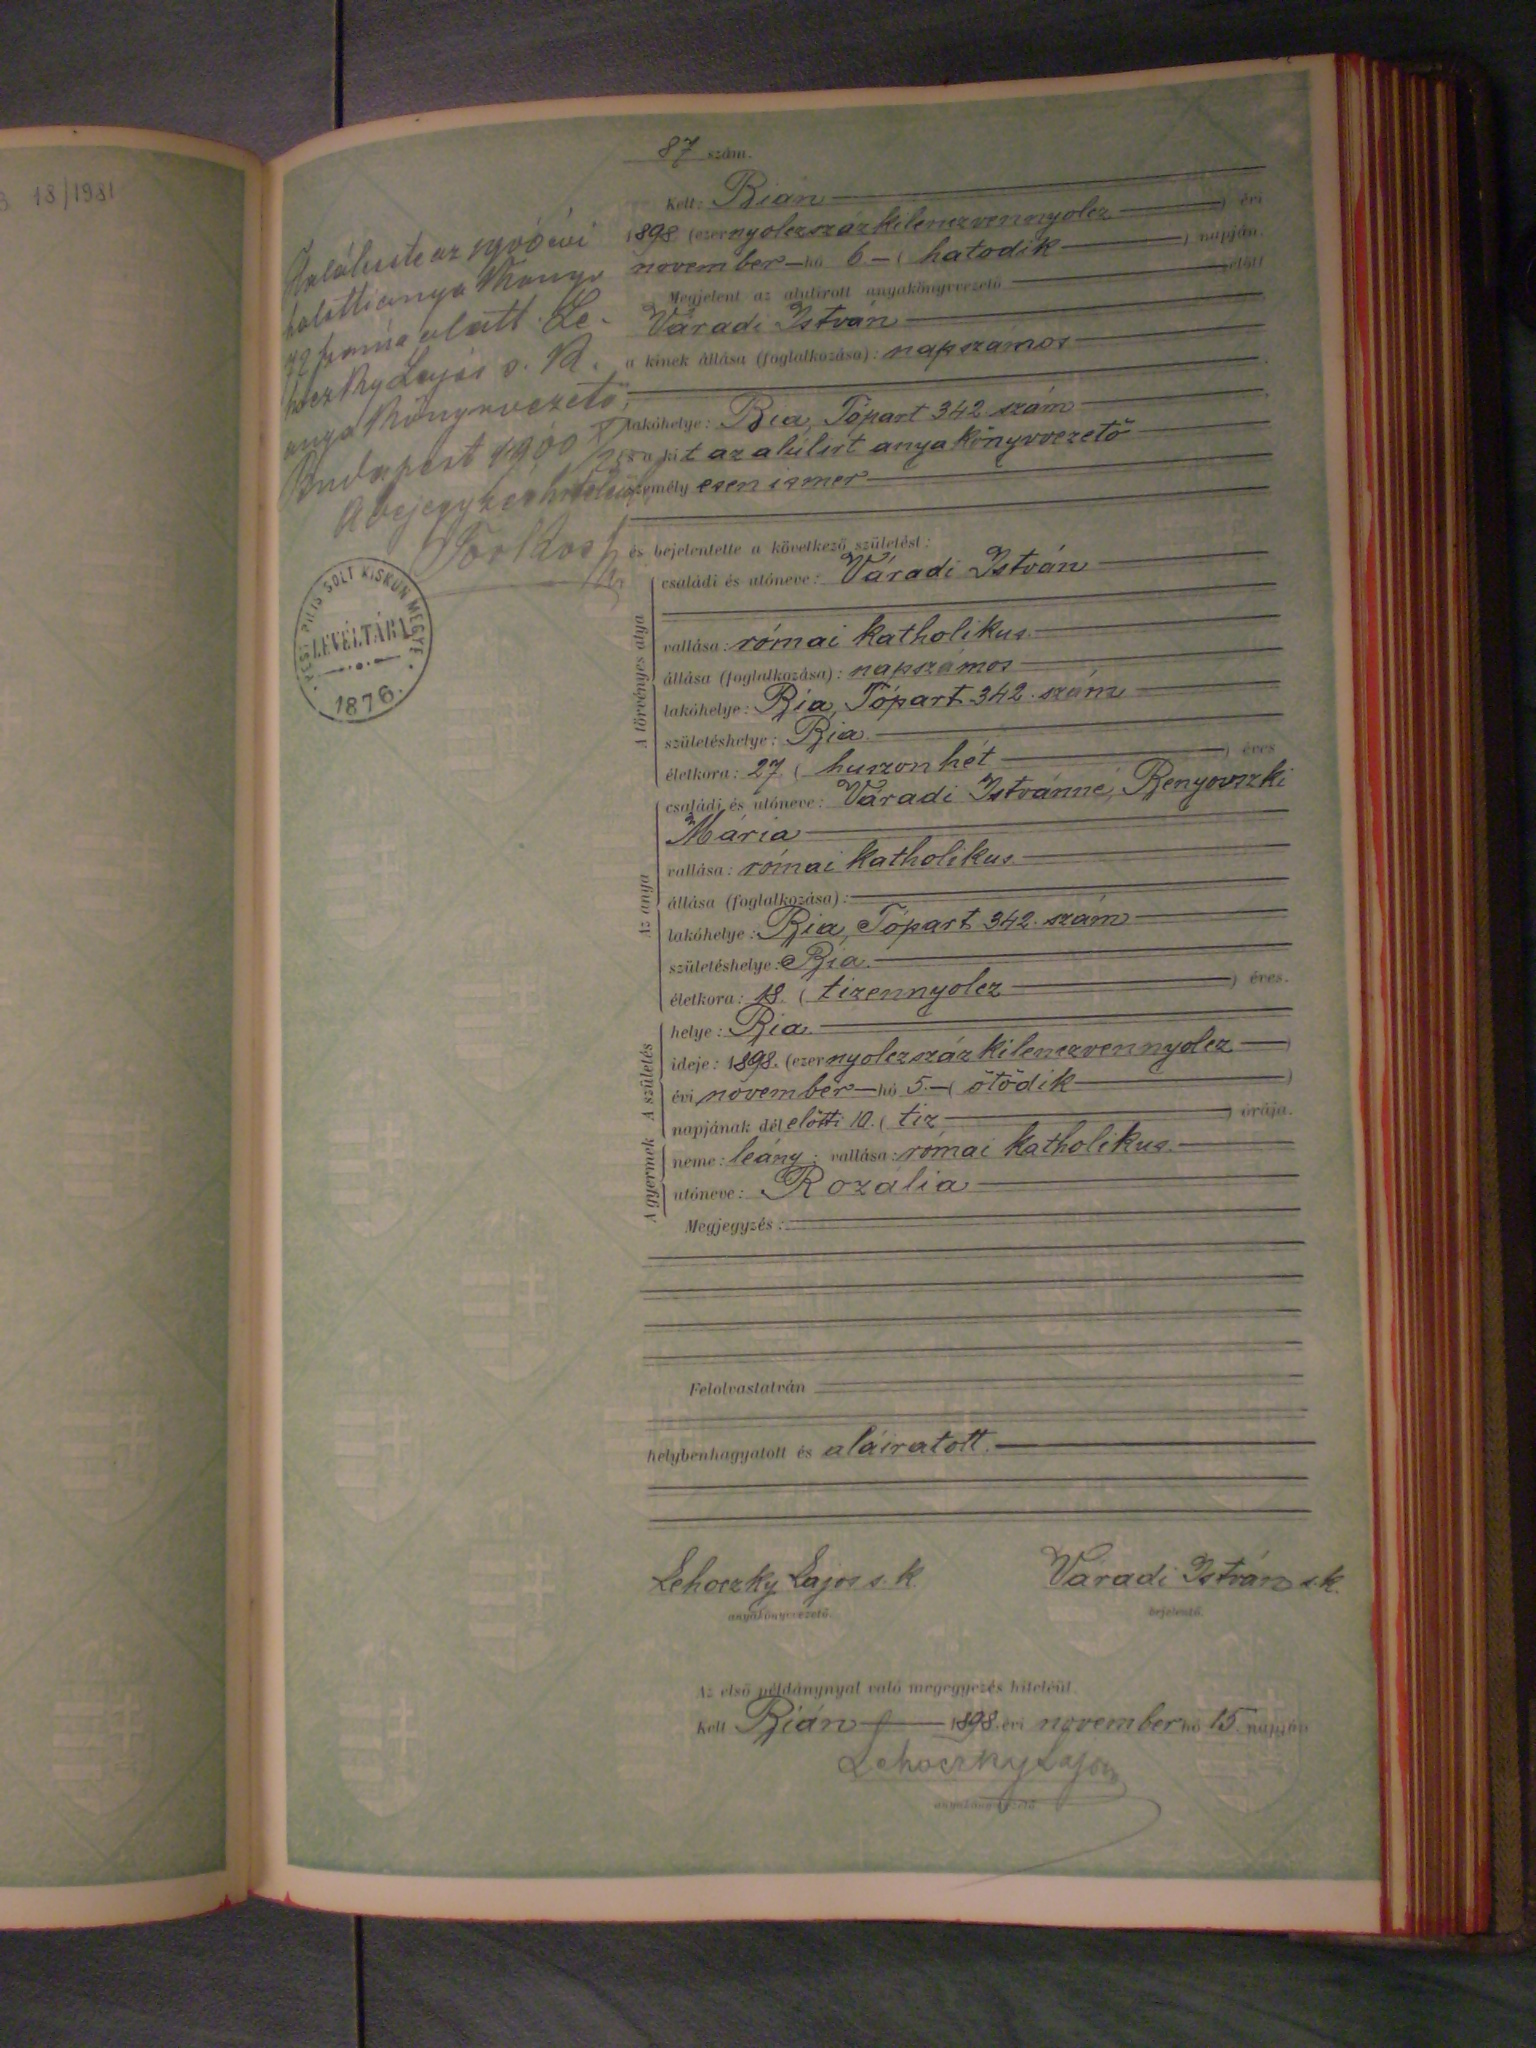 18/1981
87 szám.
Kelt: Bián
1898 (ezernyolczszázkilenczvennyolcz) évi
november hó 6 (hatodik) napján.
Megjelent az alulirott anyakönyvvezető előtt
Váradi István
a kinek állása (foglalkozása): napszámos
lakóhelye: Bia, Tópart 342 szám
és a kit az alúlirt anyakönyvvezető
személyesen ismer
és bejelentette a következő születést:
A törvényes atya
családi és utóneve: Váradi István
vallása: római katholikus.
állása (foglalkozása): napszámos
lakóhelye: Bia, Tópart 342. szám
születéshelye: Bia.
életkora: 27. (huszonhét) éves
Az anya
családi és utóneve: Váradi Istvánné, Benyovszki
Mária
vallása: római katholikus.
állása (foglalkozása):
lakóhelye: Bia, Tópart 342. szám
születéshelye: Bia.
életkora: 18. (tizennyolcz) éves.
A születés
helye: Bia.
ideje: 1898. (ezernyolczszázkilenczvennyolcz)
évi november hó 5. (ötödik)
napjának délelőtti 10. (tiz) órája.
A gyermek
neme: leány; vallása: római katholikus.
utóneve: Rozália
Megjegyzés:
Felolvastatván
helybenhagyatott és aláiratott.
Lehoczky Lajos s. k. Váradi István s. k.
anyakönyvvezető. bejelentő.
Az első példánynyal való megegyezés hiteléül
Kelt Bián 1898. évi november hó 15. napján
Lehoczky Lajos
anyakönyvvezető
az 1900 évi
halotti anyakönyv
72 alatt. Le-
hoczky Lajos s. k.
anyakönyvvezető.
Budapest 1900
A bejegyzés hiteléül
PEST PILIS SOLT KISKUN MEGYE
LEVÉLTÁRA
1876.